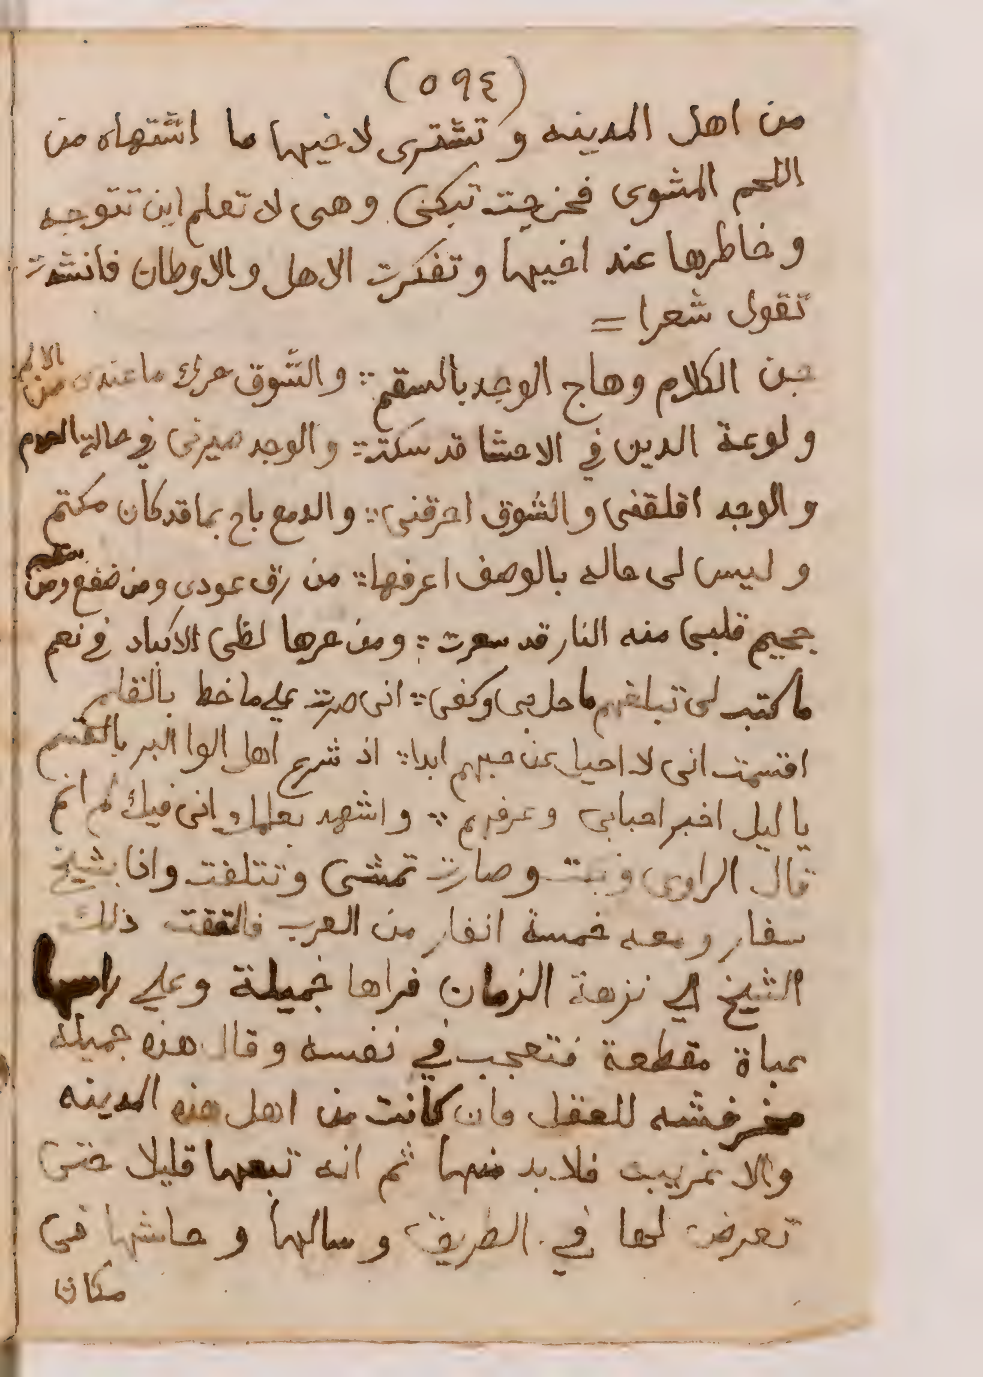 (٥٩٤)
من اهل المدينه و تشترى لاخيها ما اشتهاه من
اللحم المشوى فخرجت تبكى وهى لا تعلم اين تتوجه
وخاطرها عند اخيها وتفكرت الاهل والاوطان فانشدت
تقول شعرا =
جن الكلام وهاج الوجد بالسقم والشوق حرك ما عندى من الالم
ولوعة البين في الاحشا قد سكنت والوجد صيرنى في حالة العدم
والوجد اقلقنى والشوق احرقنى والدمع باح بما قد كان مكتم
وليس لى حاله بالوصف اعرفها من رق عودى ومن ضعع ومن سقم
جحيم قلبى منه النار قد سعرت ومن حرها لظى الاكباد في نعم
ما كتب لى تبلغهم ما حل بى وكفى انى صرت على ما خط بالقلم
اقسمت انى لا احيل عن حبهم ابدا اذ شرع اهل الوا البر بالقسم
يا ليل اخبر احبابى وعرفهم واشهد بعلمك انى فيك لم انم
قال الراوى وصارت تمشى وتتلفت واذا بشيخ
سفار ومعه خمسة انفار من العرب فالتفت ذلك
الشيخ الي نزهة الزمان فراها جميلة وعلي راسها
عباة مقطعة فتعجب في نفسه وقال هذه جميله
للعقل فان كانت من اهل هذه المدينه
والا غريبت فلا بد منها ثم انه تبعها قليلا حتى
تعرض لها في الطريق وسالها وحاشها فى
مكان